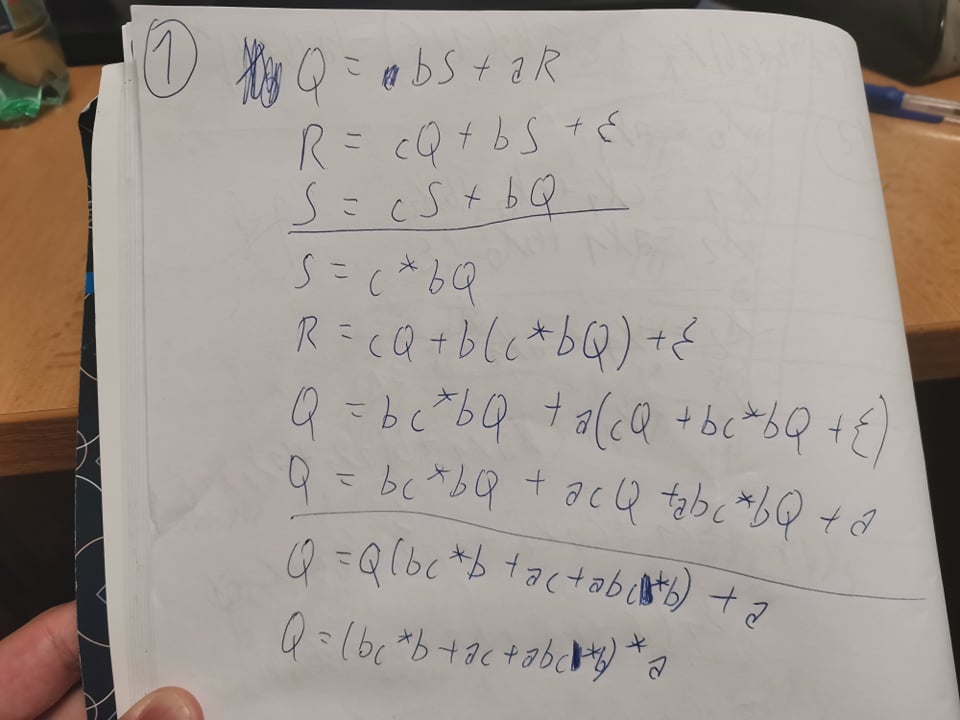 1 Q = bS + aR
R = cQ + bS + ε
S = cS + bQ
S = c*bQ
R = cQ + b(c*bQ) + ε
Q = bc*bQ + a(cQ + bc*bQ + ε)
Q = bc*bQ + acQ + abc*bQ + a
Q = Q(bc*b + ac + abc*b) + a
Q = (bc*b + ac + abc*b)*a